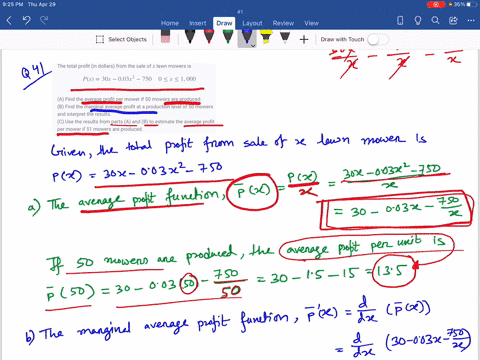 9:25 PM Thu Apr 29
41
35%
Home Insert Draw Layout Review View
Select Objects
Draw with Touch
Q 41
The total profit (in dollars) from the sale of x lawn mowers is
P(x) = 30x − 0.03x² − 750 0 ≤ x ≤ 1,000
(A) Find the average profit per mower if 50 mowers are produced.
(B) Find the marginal average profit at a production level of 50 mowers
and interpret the results.
(C) Use the results from parts (A) and (B) to estimate the average profit
per mower if 51 mowers are produced.
Given, the total profit from sale of x lawn mower is
P(x) = 30x − 0.03x² − 750
a) The average profit function, P̄(x) = P(x)/x = (30x − 0.03x² − 750)/x
= 30 − 0.03x − 750/x
If 50 mowers are produced, the average profit per unit is
P̄(50) = 30 − 0.03(50) − 750/50 = 30 − 1.5 − 15 = 13.5
b) The marginal average profit function, P̄'(x) = d/dx (P̄(x))
= d/dx (30 − 0.03x − 750/x)